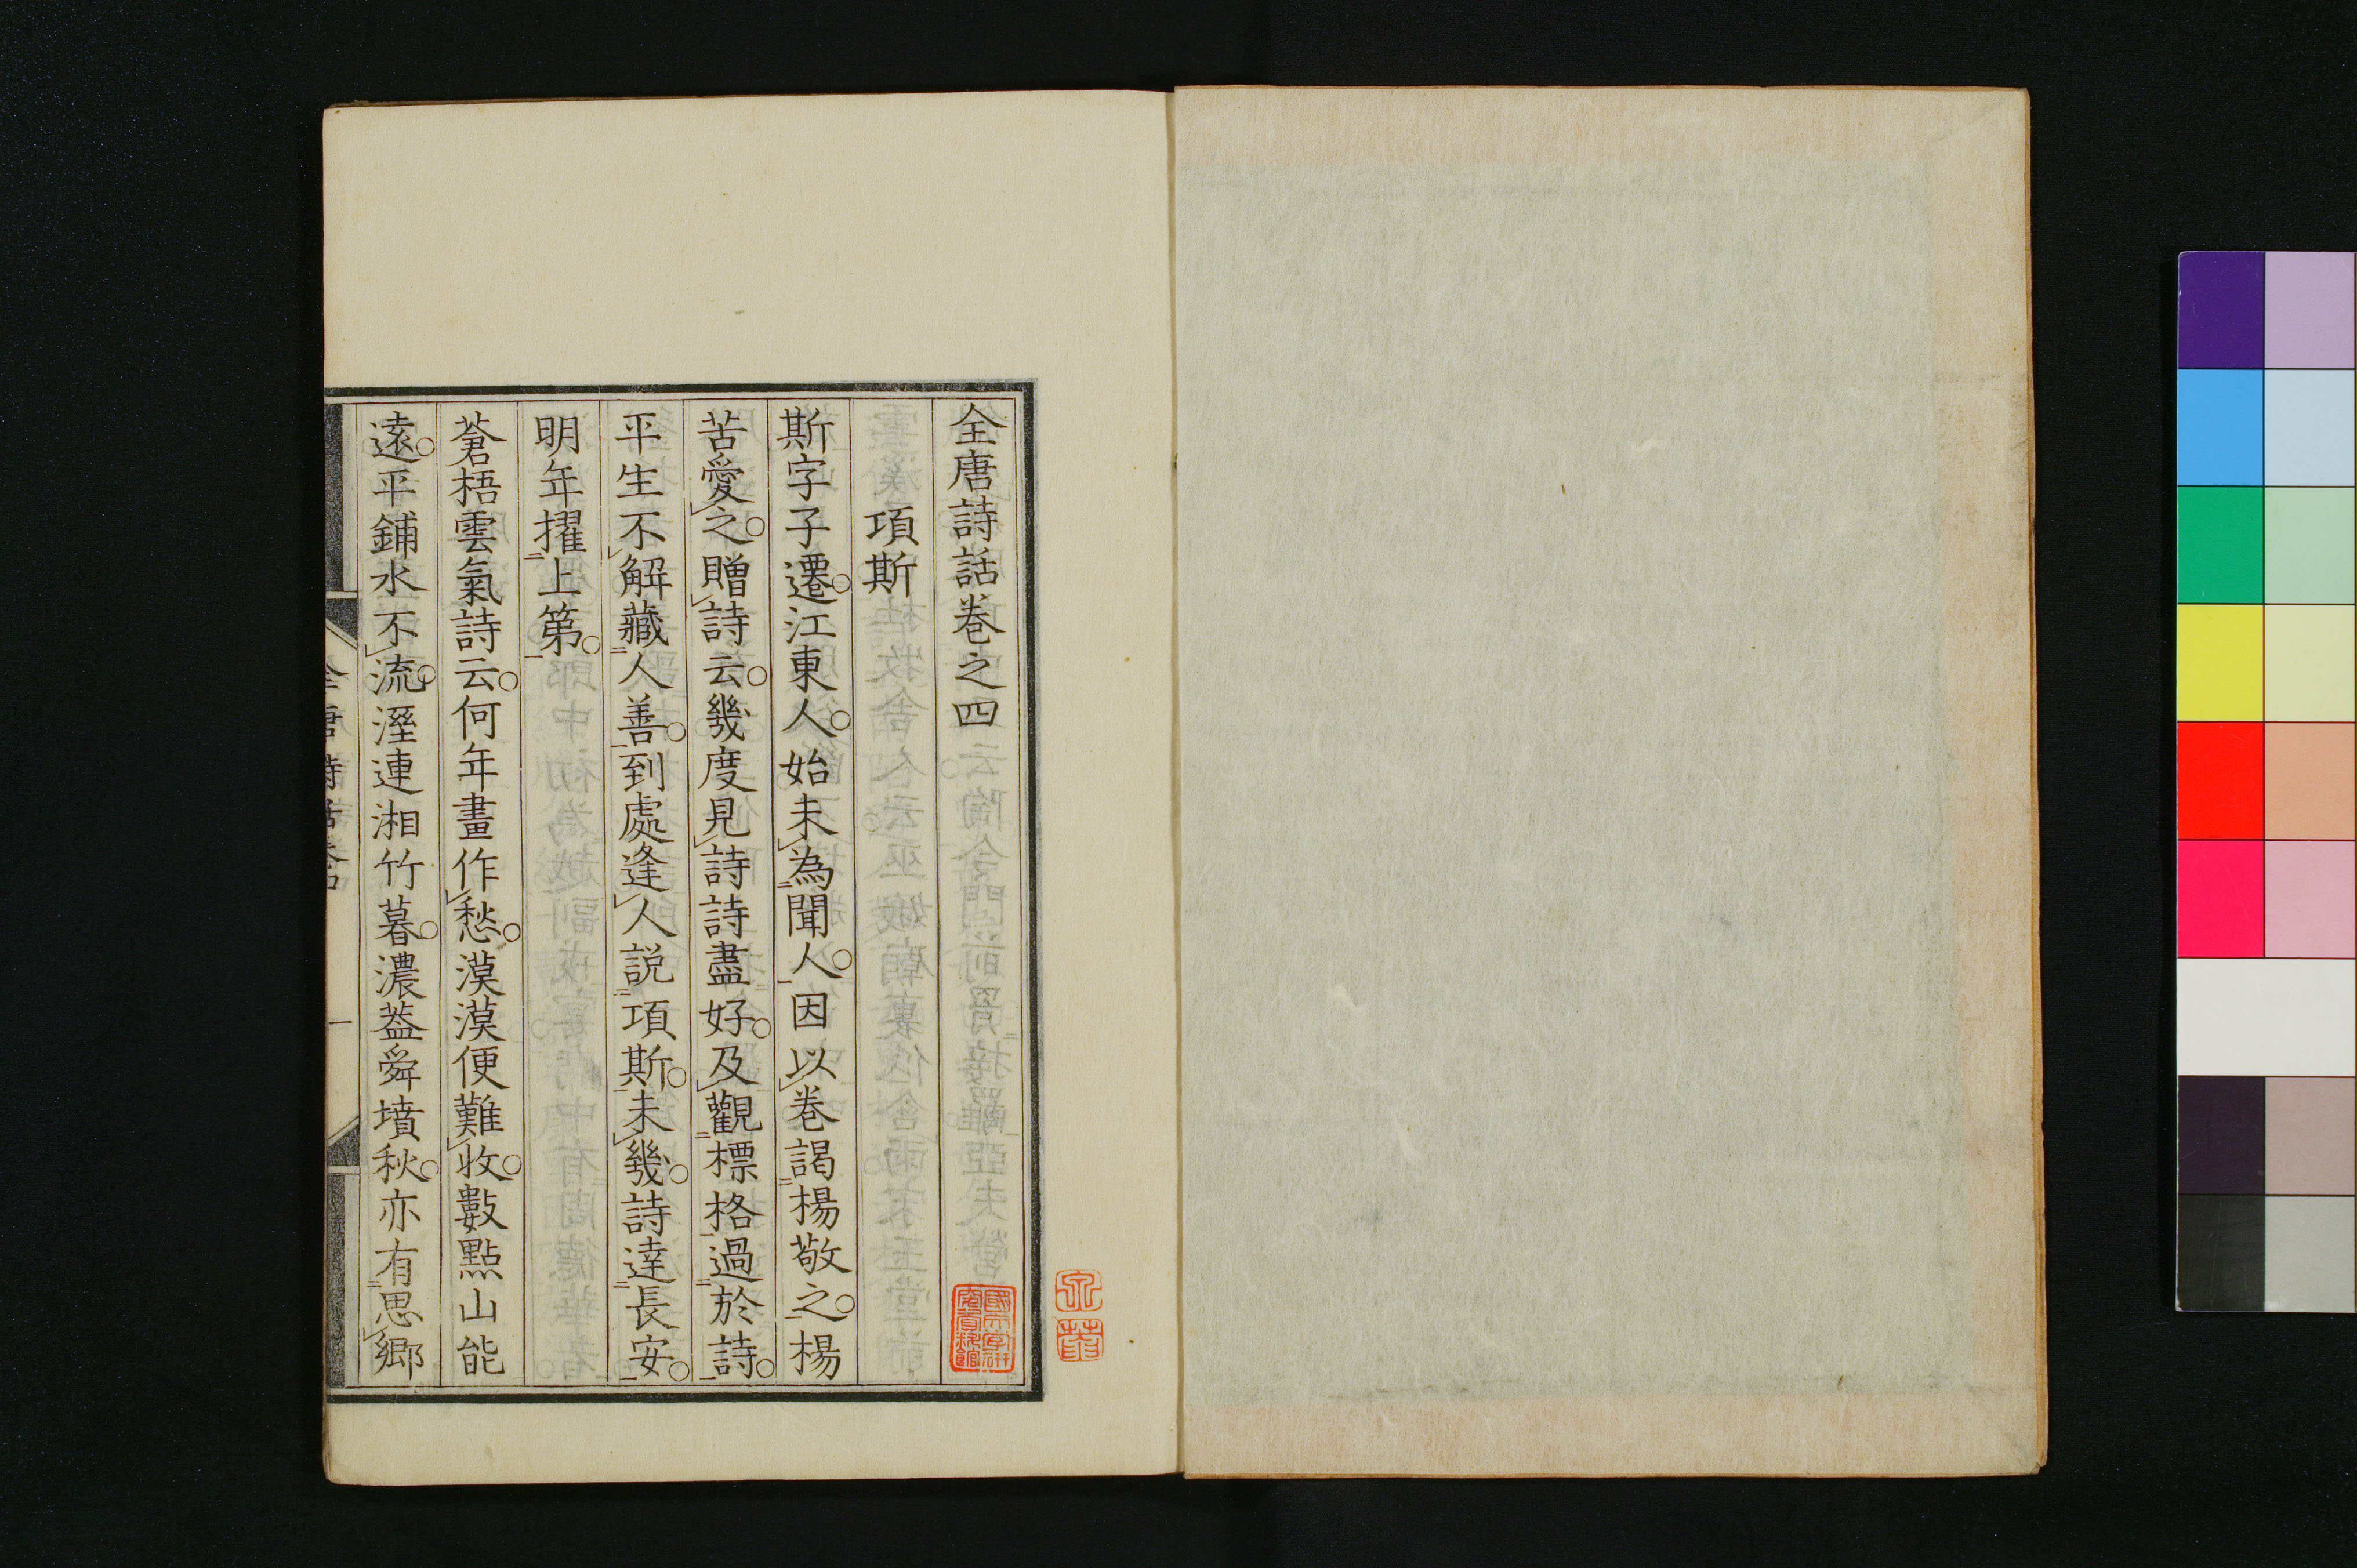 全唐詩話卷之四
項斯
斯字子遷江東人始未為聞人因以卷謁楊敬之楊
苦愛之贈詩云幾度見詩詩盡好及觀標格過於詩
平生不解藏人善到處逢人説項斯未幾詩達長安
明年擢上第
蒼梧雲氣詩云何年畫作愁漠漠便難收數點山能
遠平鋪水不流溼連湘竹暮濃葢舜墳秋亦有思鄉
全唐詩話卷四
一